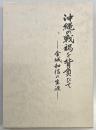 沖縄の戦禍を背負いて
―金城和信の生涯―